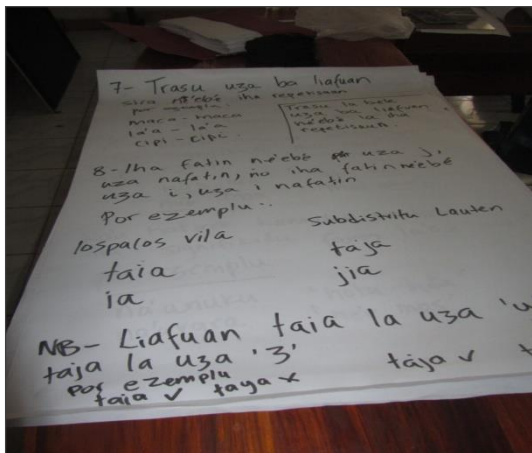 7- Trasu uza ba liafuan
sira ne'ebé iha repetisaun
por ezemplu
maca - maca
la'a - la'a
cipi - cipi
Trasu la bele
uza ba liafuan
ne'ebé la iha
repetisaun.
8- Iha fatin ne'ebé uza j,
uza nafatin, no iha fatin ne'ebé
uza i, uza i nafatin
Por ezemplu :
lospalos vila
taia
ia
Subdistritu Lauten
taja
jia
NB- Liafuan taia la uza 'y
taja la uza '3'
Por ezemplu
taia ✓ taya x
taja ✓ t